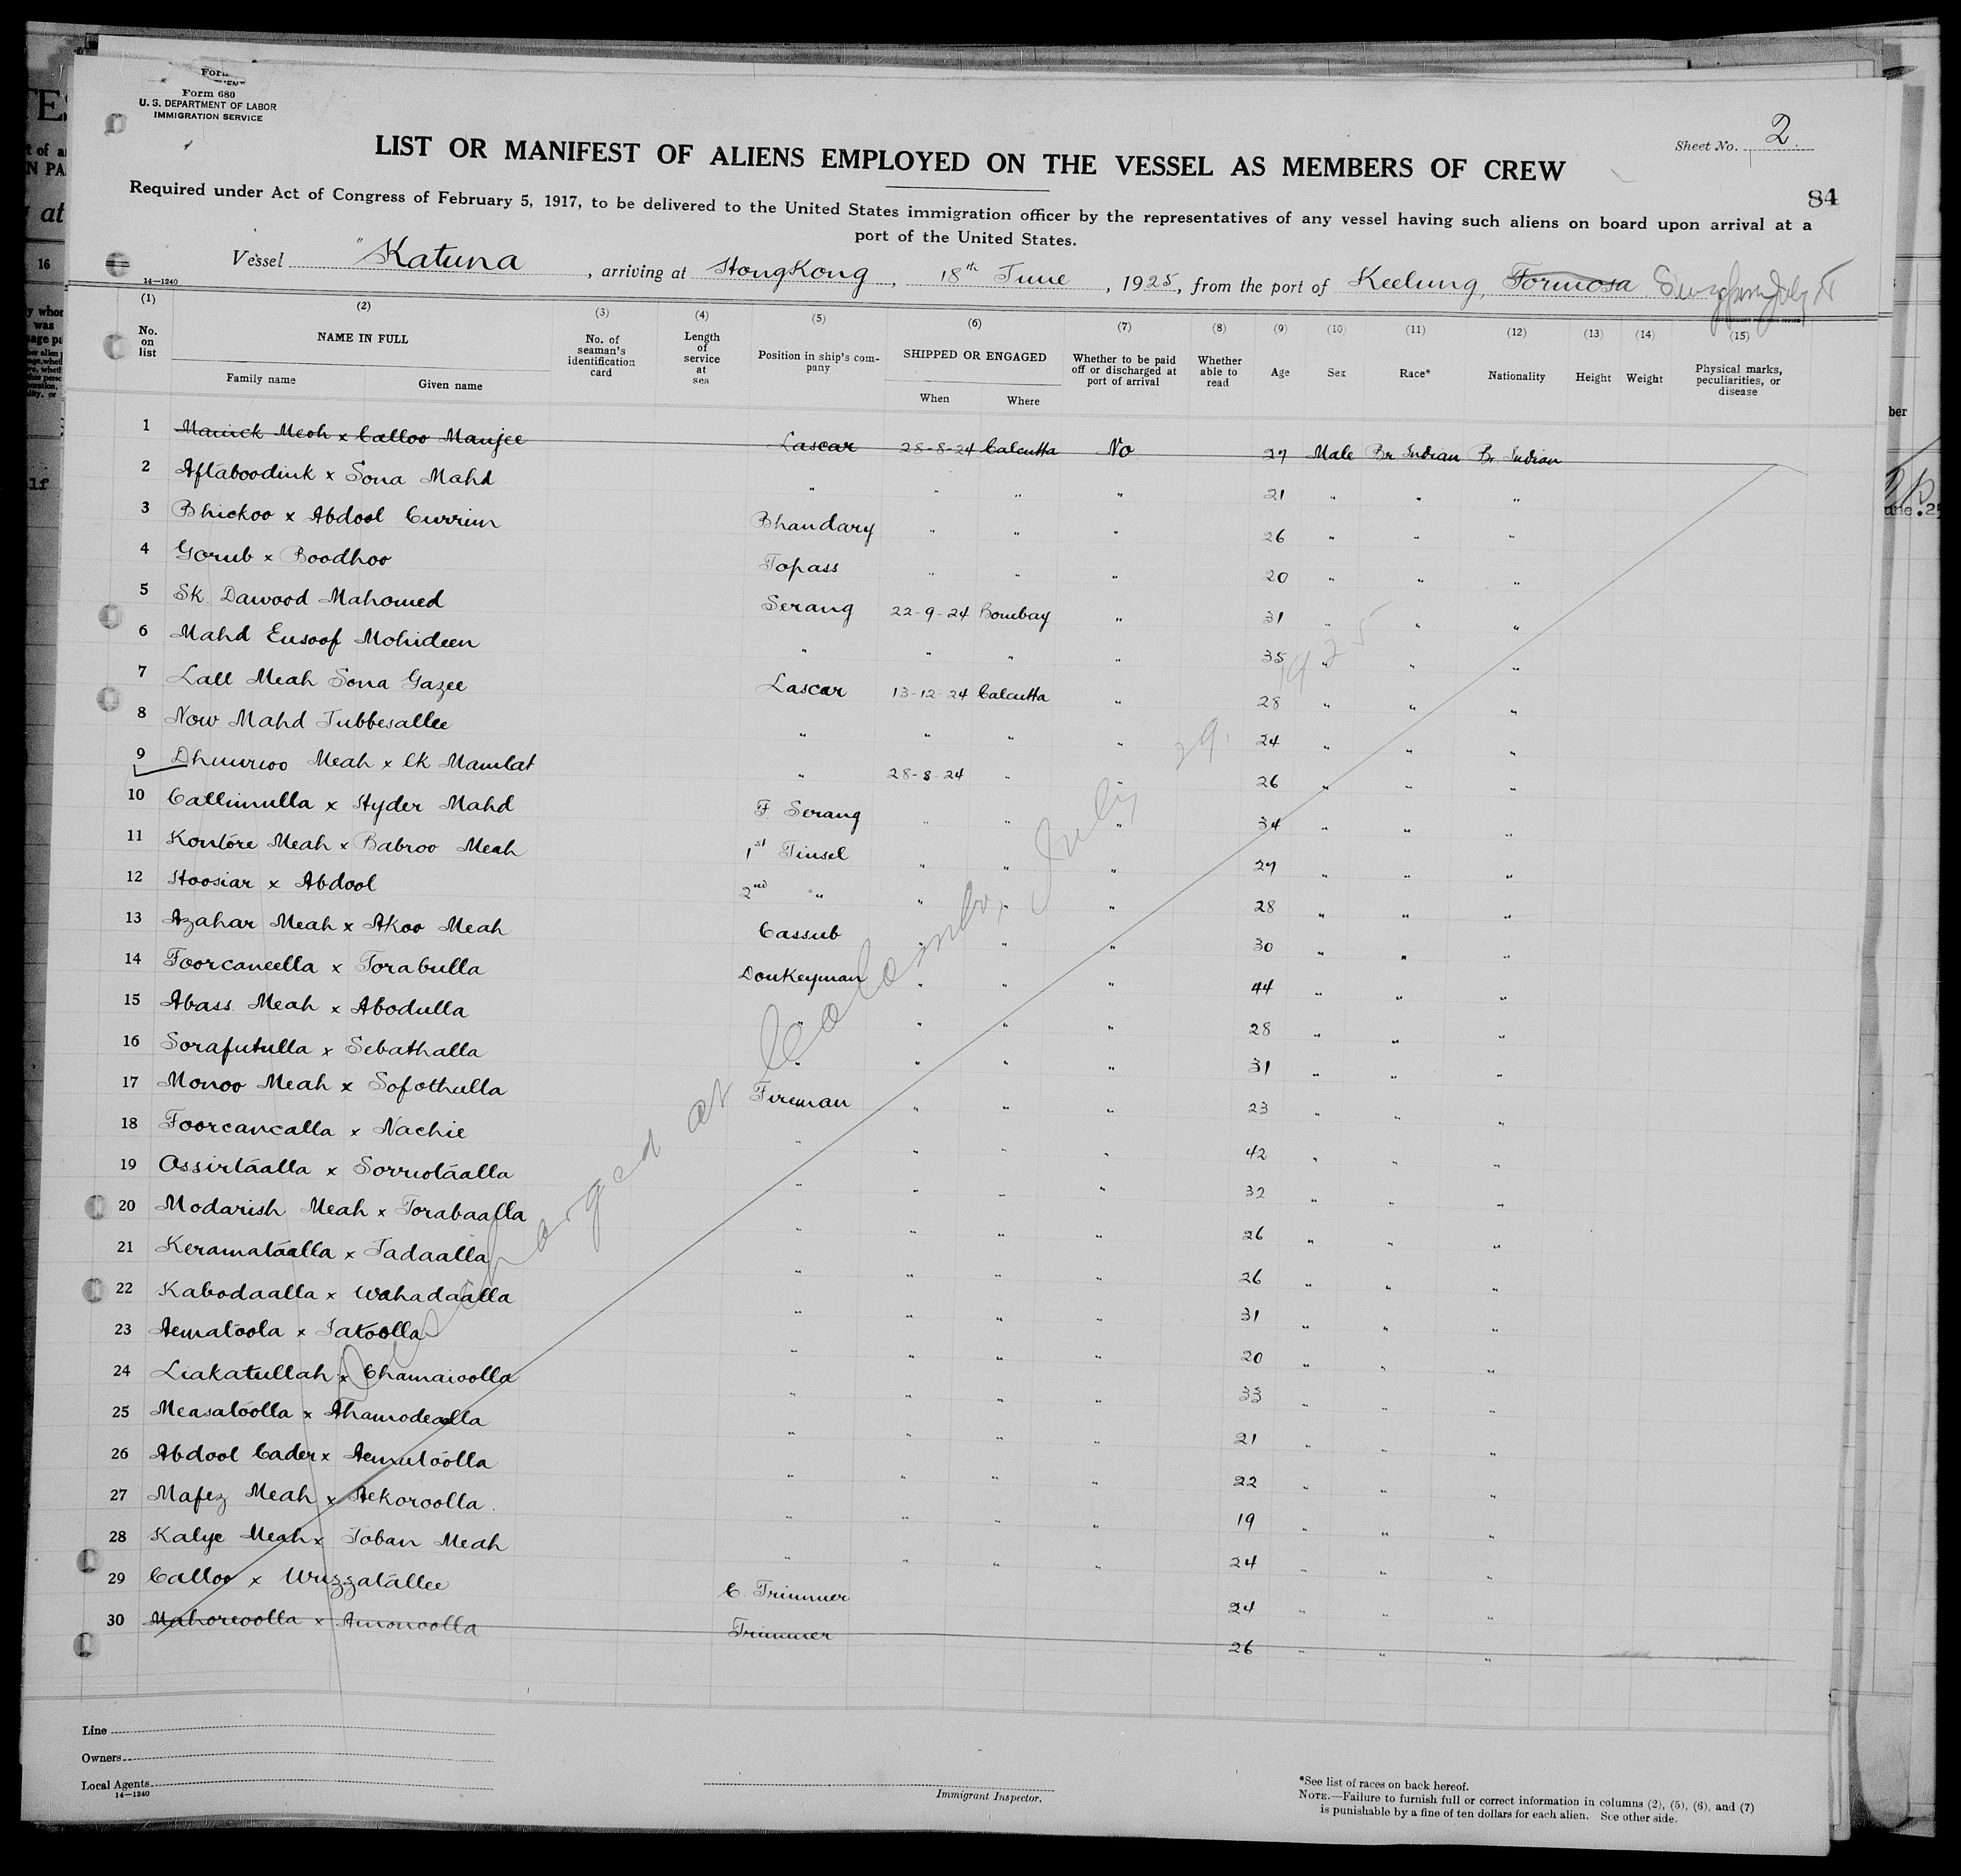 Form 680
U. S. DEPARTMENT OF LABOR
IMMIGRATION SERVICE
Sheet No. 2.
LIST OR MANIFEST OF ALIENS EMPLOYED ON THE VESSEL AS MEMBERS OF CREW
84
Required under Act of Congress of February 5, 1917, to be delivered to the United States immigration officer by the representatives of any vessel having such aliens on board upon arrival at a
port of the United States.
Vessel "Katuna , arriving at HongKong , 18th June , 1925, from the port of Keelung, Formosa
14—1240
(1) (2) (3) (4) (5) (6) (7) (8) (9) (10) (11) (12) (13) (14) (15)
No. on list NAME IN FULL Family name Given name No. of seaman's identification card Length of service at sea Position in ship's company SHIPPED OR ENGAGED When Where Whether to be paid off or discharged at port of arrival Whether able to read Age Sex Race* Nationality Height Weight Physical marks, peculiarities, or disease
1 Manick Meah x Calloo Manjee Lascar 28-8-24 Calcutta No 27 Male Br Indian Br. Indian
2 Aftaboodink x Sona Mahd " " " " 21 " " "
3 Bhickoo x Abdool Currim Bhandary " " " 26 " " "
4 Gorub x Boodhoo Topass " " " 20 " " "
5 Sk. Dawood Mahomed Serang 22-9-24 Bombay " 31 " " "
6 Mahd Eusoof Mohideen " " " " 35 " " "
7 Lall Meah Sona Gazee Lascar 13-12-24 Calcutta " 28 " " "
8 Now Mahd Tubbesallee " " " " 24 " " "
9 Dhunwoo Meah x Ek Mamlat " 28-8-24 " " 26 " " "
10 Callimulla x Hyder Mahd F. Serang " " " 34 " " "
11 Kontóre Meah x Babroo Meah 1st Tinsel " " " 27 " " "
12 Hoosiar x Abdool 2nd " " " " 28 " " "
13 Azahar Meah x Akoo Meah Cassub " " " 30 " " "
14 Foorcaneella x Torabulla Donkeyman " " " 44 " " "
15 Abass Meah x Abodulla " " " " 28 " " "
16 Sorafutulla x Sebathalla " " " " 31 " " "
17 Monoo Meah x Sofothulla Fireman " " " 23 " " "
18 Foorcancalla x Nachie " " " " 42 " " "
19 Ossirtáalla x Sorriotáalla " " " " 32 " " "
20 Modarish Meah x Torabaalla " " " " 26 " " "
21 Keramatáalla x Tadaalla " " " " 26 " " "
22 Kabodaalla x Wahadaalla " " " " 31 " " "
23 Aematoola x Takoolla " " " " 20 " " "
24 Liakatullah x Chamaioolla " " " " 33 " " "
25 Measatóolla x Ahamodealla " " " " 21 " " "
26 Abdool Cader x Aematóolla " " " " 22 " " "
27 Mafez Meah x Aekoroolla " " " " 19 " " "
28 Kalye Meah x Toban Meah " " " " 24 " " "
29 Calloo x Wuzzatállee C. Trimmer 24 " " "
30 Mahorewoolla x Amonoolla Trimmer 26 " " "
Discharged at Coalombo, July 29. 1925
Line
Owners
Local Agents
14—1240
Immigrant Inspector.
*See list of races on back hereof.
NOTE.—Failure to furnish full or correct information in columns (2), (5), (6), and (7)
is punishable by a fine of ten dollars for each alien. See other side.